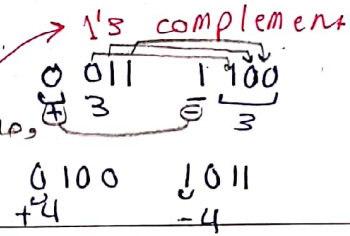 1's complement
0 011 1 100
+ 3 - 3
0 100 1 011
+4 -4